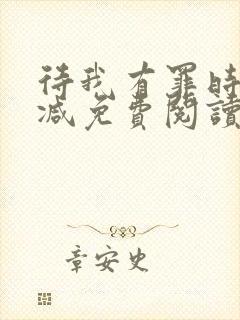 待我有罪時
减免費閱讀
章安史